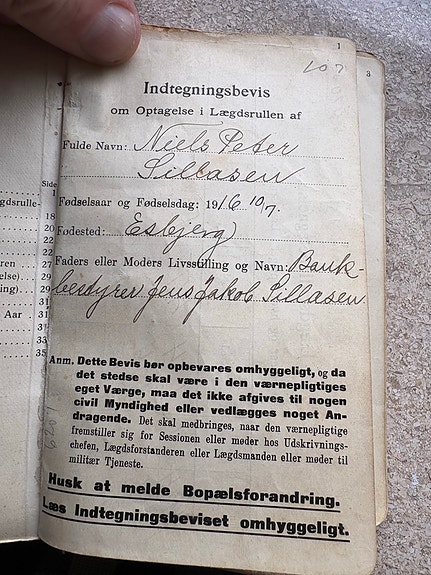 1
107
Indtegningsbevis
om Optagelse i Lægdsrullen af
Fulde Navn: Niels Peter
Sillasen
Fødselsaar og Fødselsdag: 1916 10/7.
Fødested: Esbjerg
Faders eller Moders Livsstilling og Navn: Bank-
bestyrer Jens Jakob Sillasen
Anm. Dette Bevis bør opbevares omhyggeligt, og da
det stedse skal være i den værnepligtiges
eget Værge, maa det ikke afgives til nogen
civil Myndighed eller vedlægges noget An-
dragende. Det skal medbringes, naar den værnepligtige
fremstiller sig for Sessionen eller møder hos Udskrivnings-
chefen, Lægdsforstanderen eller Lægdsmanden eller møder til
militær Tjeneste.
Husk at melde Bopælsforandring.
Læs Indtegningsbeviset omhyggeligt.
3
Side
1
18
20
22
22
27
29
29
31
Aar
31
35